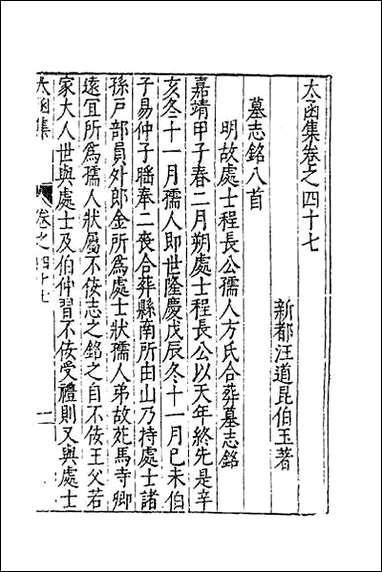 太函集卷之四十七
新都汪道昆伯玉著
墓志銘八首
明故處士程長公孺人方氏合葬墓志銘
嘉靖甲子春二月朔處士程長公以天年終先是辛
亥冬十一月孺人即世隆慶戊辰冬十一月己未伯
子易仲子𦠿奉二喪合葬縣南所由山乃持處士諸
孫戶部員外郎金所爲處士狀孺人弟故苑馬寺卿
遠宜所爲孺人狀屬不佞志之銘之自不佞王父若
家大人世與處士及伯仲習不佞受禮則又與處士
太函集
卷之四十七
一